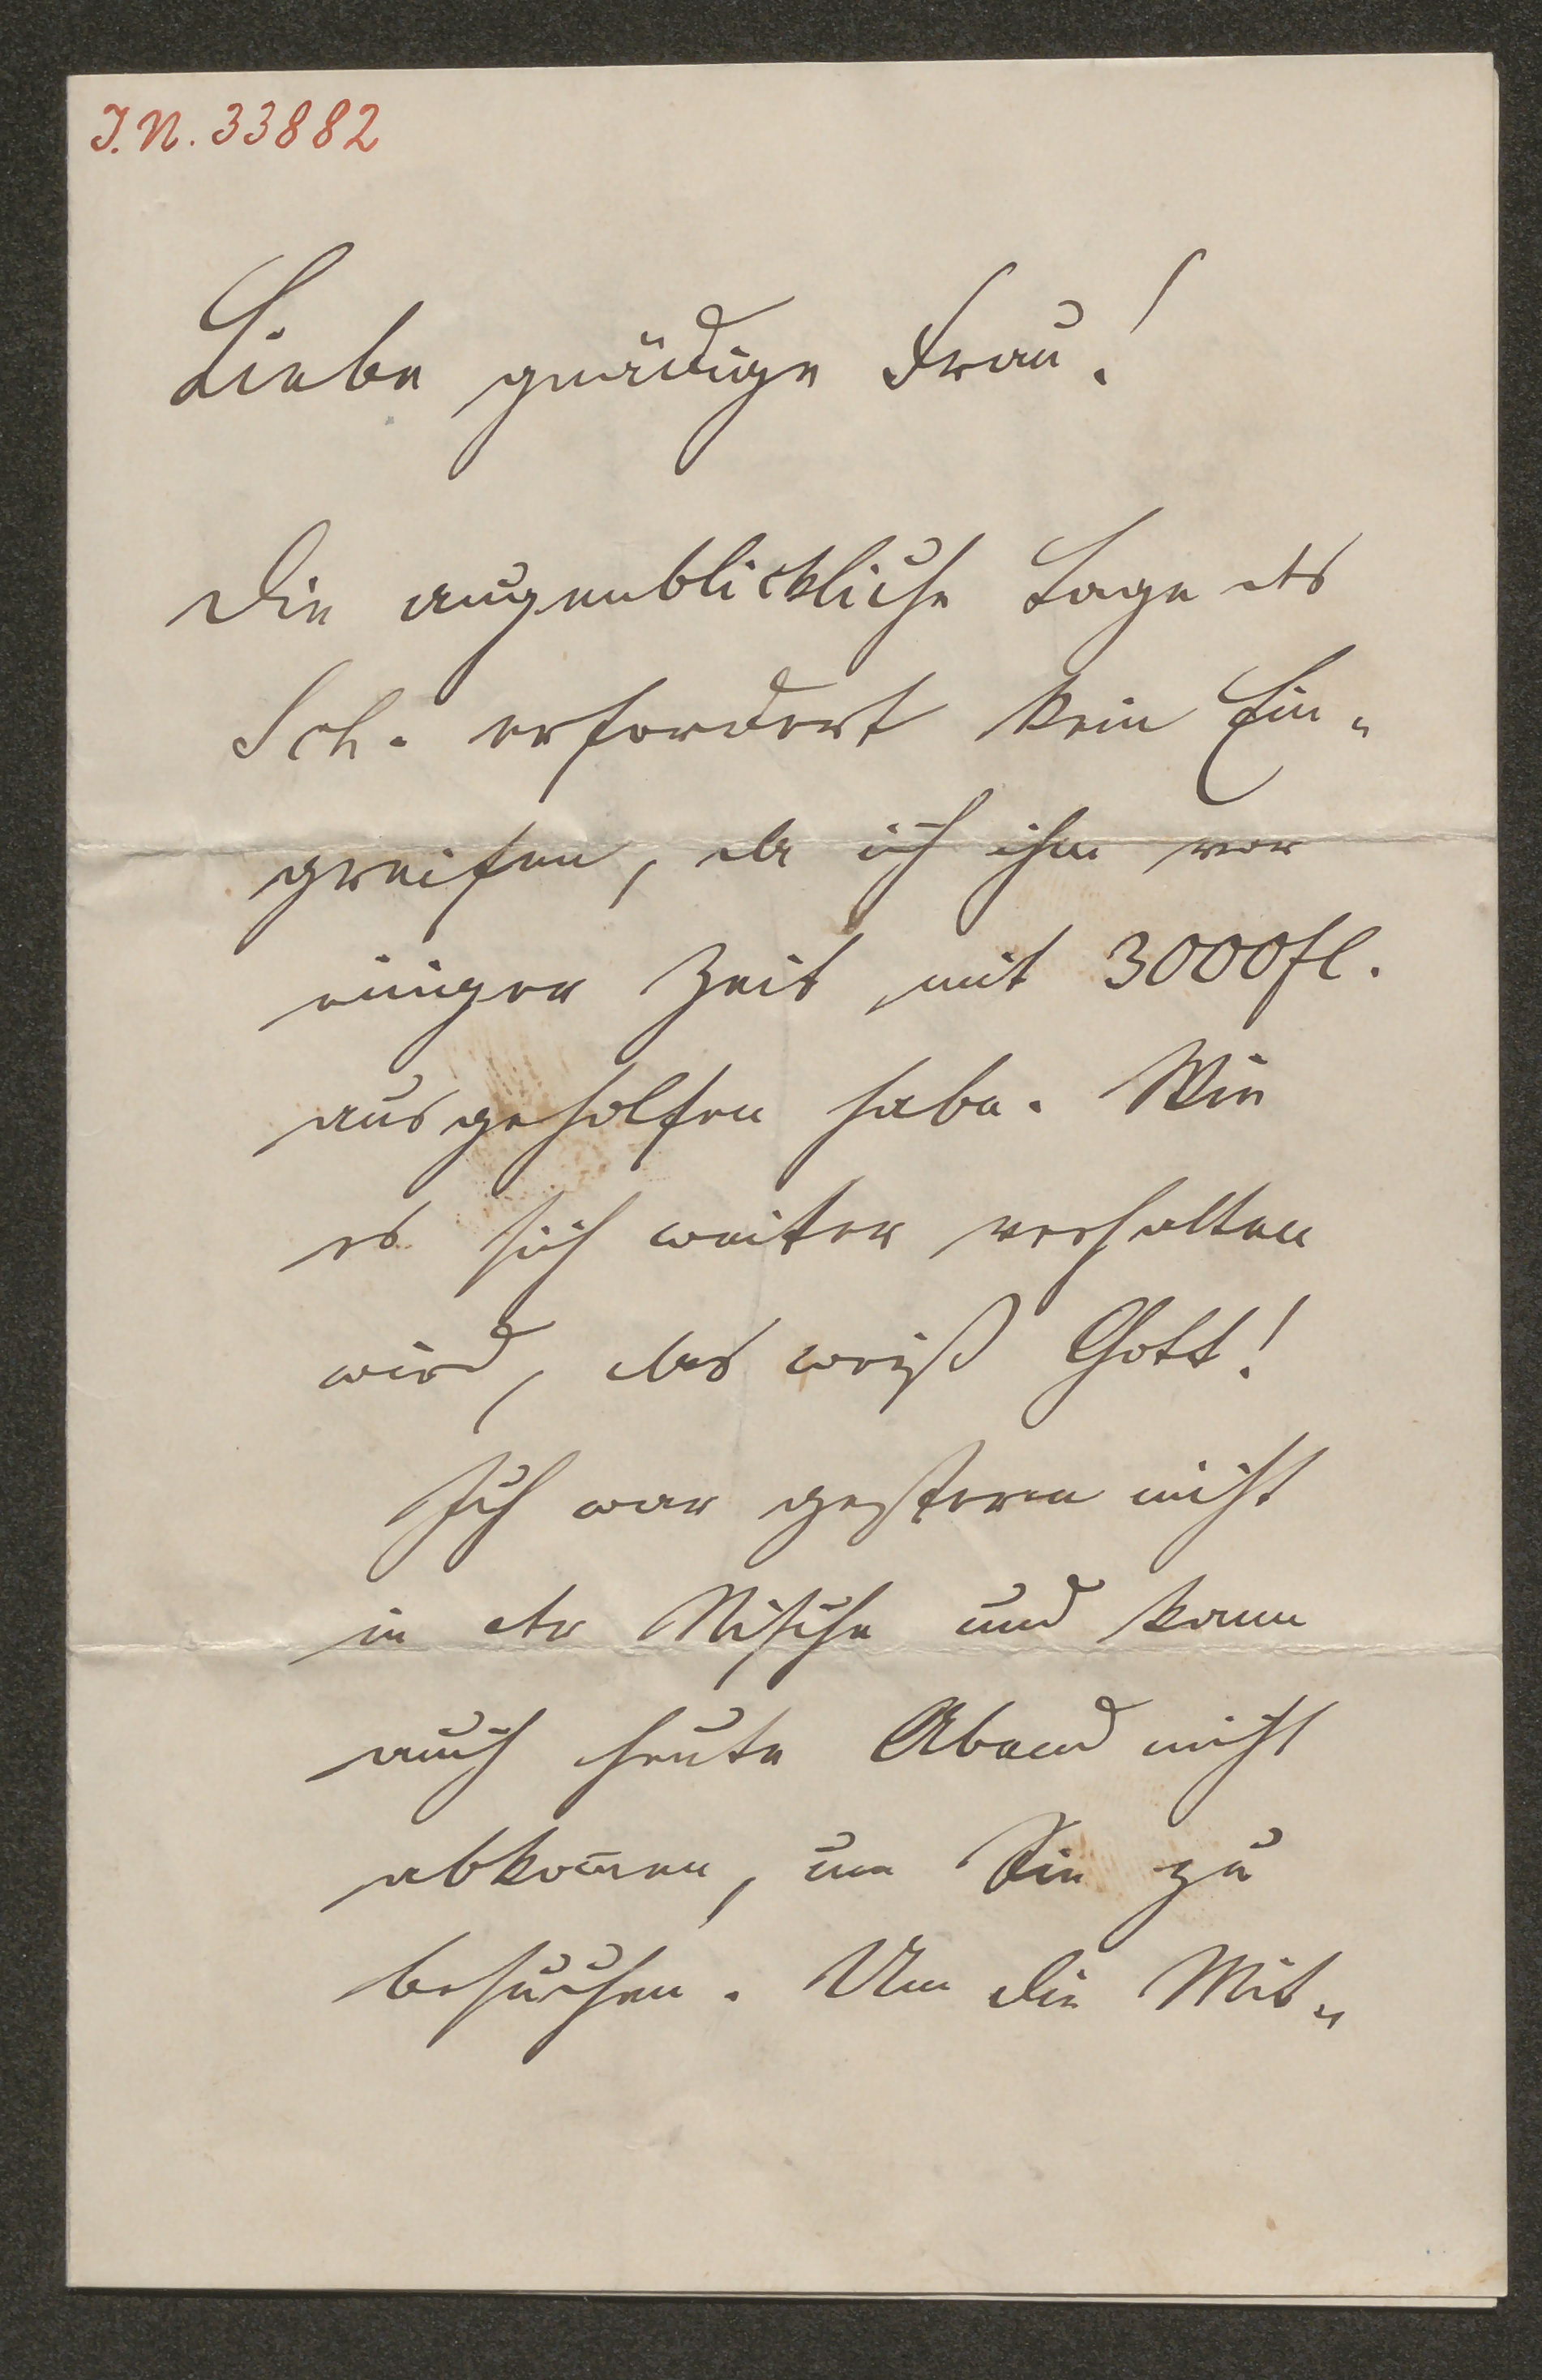 I.N. 33882
Liebe gnädige Frau!
Die augenblickliche Lage des
Sch. erfordert kein Ein-
greifen, da ich ihm vor
einiger Zeit mit 3000 fl.
ausgeholfen habe. Wie
es sich weiter verhalten
wird, das weiß Gott!
Ich war gestern nicht
in der Nische und kann
auch heute Abend nicht
abkom̄en, um Sie zu
besuchen. Um die Mit-